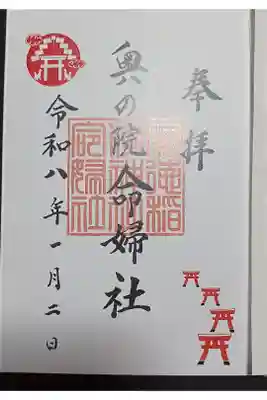 奉拝
奥の院命婦社
令和八年一月二日
命婦社